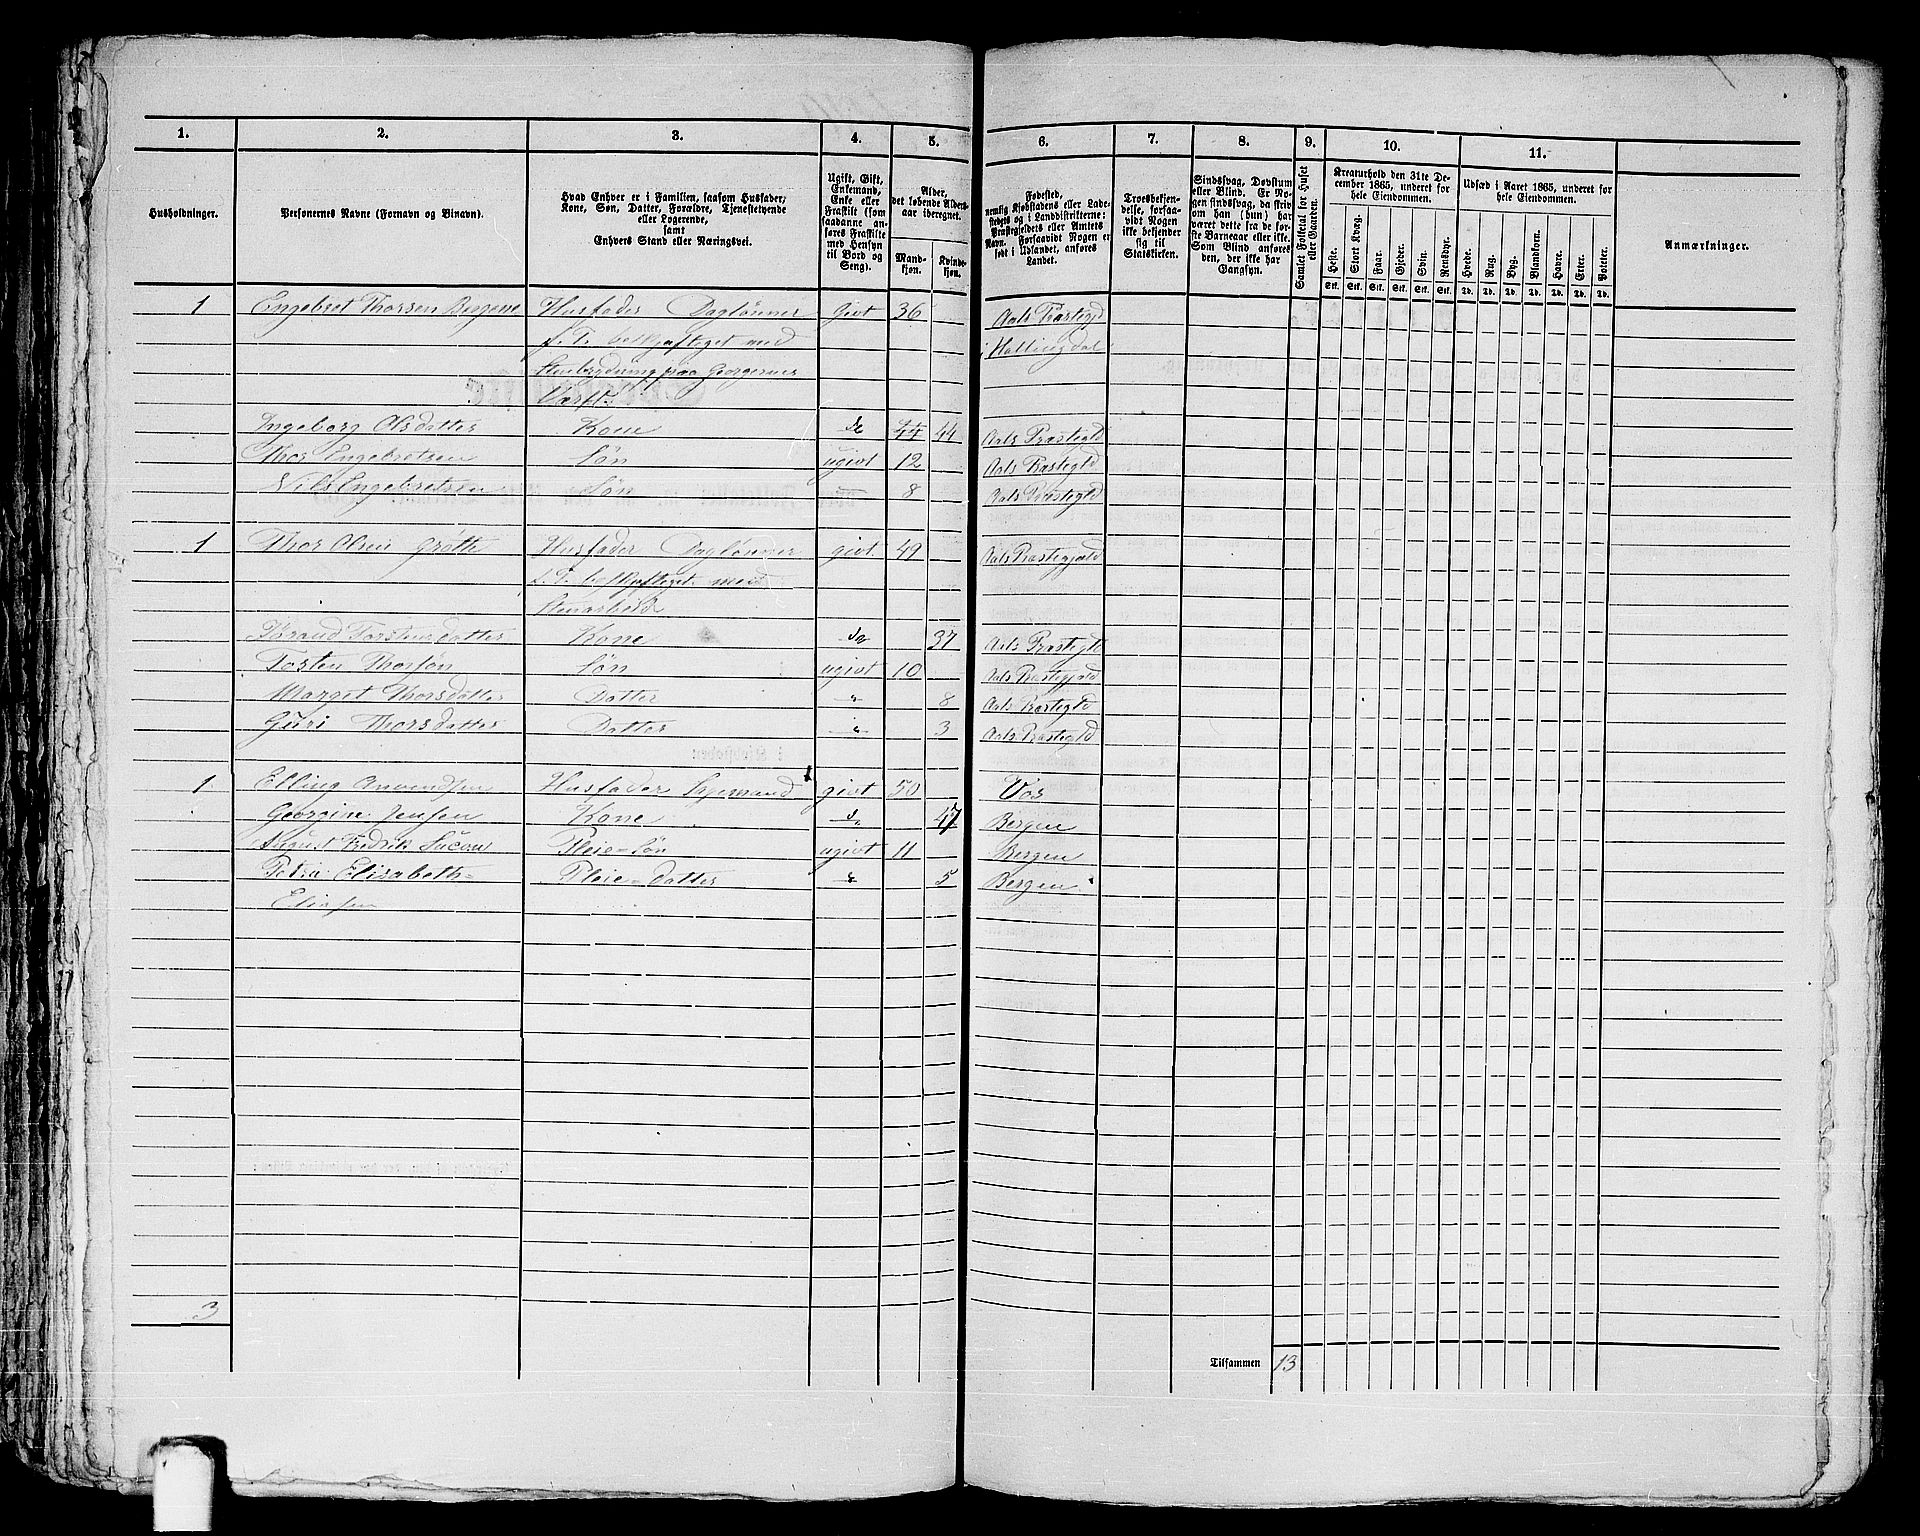 1. 2. 3. 4. 5. 6. 7. 8. 9. 10. 11.
Husholdninger.
Personernes Navne (Fornavn og Binavn).
Hvad Enhver er i Familien, saasom Husfader,
Kone, Søn, Datter, Forældre, Tjenestetyende
eller Logerende,
samt
Enhvers Stand eller Næringsvei.
Ugift, Gift,
Enkemand,
Enke eller
Fraskilt (som
saadanne an-
føres Fraskilte
med Hensyn
til Bord og
Seng).
Alder,
det løbende Alders-
aar iberegnet.
Mand-
kjøn.
Kvinde-
kjøn.
Fødested,
nemlig Kjøbstadens eller Lade-
stedets og i Landdistrikterne:
Præstegjeldets eller Amtets
Navn. Forsaavidt Nogen er
født i Udlandet, anføres
Landet.
Troesbekjen-
delse, forsaa-
vidt Nogen
ikke bekjender
sig til
Statskirken.
Sindssvag, Døvstum
eller Blind. Er No-
gen sindssvag, da skriv
om han (hun) har
været dette fra de før-
ste Barneaar eller ikke.
Som Blind anføres
den, der ikke har
Gangsyn.
Samlet Folketal for Huset
eller Gaarden.
Kreaturhold den 31te De-
cember 1865, underet for
hele Eiendommen.
Heste. Stort Kvæg. Faar. Gjeder. Svin. Rensdyr.
Stk. Stk. Stk. Stk. Stk. Stk.
Udsæd i Aaret 1865, underet for
hele Eiendommen.
Hvede. Rug. Byg. Blandkorn. Havre. Erter. Poteter.
Td. Td. Td. Td. Td. Td. Td.
Anmærkninger.
1 Engebret Thorsen Husfader Daglønner Givt 36 Aals Præstegjd
f. T. beskjæftiget med i Hallingdal
Stenbrydning paa Georgernes
Værft.
Ingeborg Olsdatter Kone do 44 44 Aals Præstegld
Thor Engebretsen Søn ugivt 12 Aals Præstegld
Nils Engebretsen Søn 8 Aals Præstegld
1 Thor Olsen Grøtte Husfader Daglønner givt 49 Aals Præstegjæld
f. T. beskjæftiget med
Stenarbeide
Torstensdatter Kone do 37 Aals Præstegld
Tosten Thorsøn Søn ugivt 10 Aals Præstegjæld
Marget Thorsdatter Datter " 8 Aals Præstegld
Guri Thorsdatter Datter " 3 Aals Præstegld
1 Elling Amundsen Husfader givt 50 Vos
Georgine Jensen Kone do 47 Bergen
August Fredrik Pleie-Søn ugivt 11 Bergen
Petra Elisabeth- Pleie-Datter " 5 Bergen
Eliasen
3
Tilsammen 13